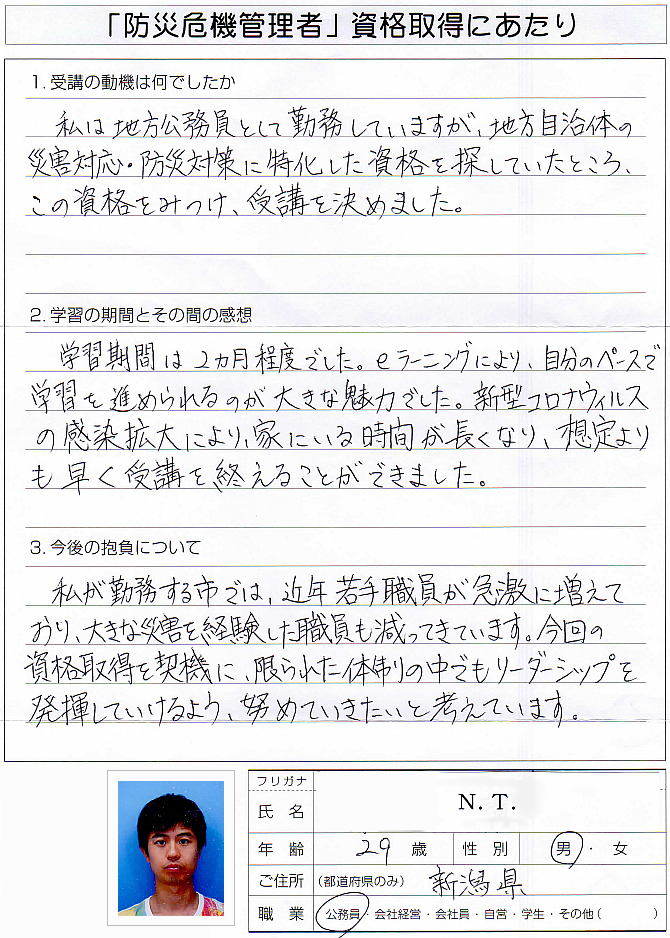 「防災危機管理者」資格取得にあたり
1. 受講の動機は何でしたか
私は地方公務員として勤務していますが、地方自治体の
災害対応・防災対策に特化した資格を探していたところ、
この資格をみつけ、受講を決めました。
2. 学習の期間とその間の感想
学習期間は2カ月程度でした。eラーニングにより、自分のペースで
学習を進められるのが大きな魅力でした。新型コロナウィルス
の感染拡大により、家にいる時間が長くなり、想定より
も早く受講を終えることができました。
3. 今後の抱負について
私が勤務する市では、近年若手職員が急激に増えて
おり、大きな災害を経験した職員も減ってきています。今回の
資格取得を契機に、限られた体制の中でもリーダーシップを
発揮していけるよう、努めていきたいと考えています。
フリガナ
氏 名 N. T.
年 齢 29 歳 性 別 男 ・ 女
ご住所 (都道府県のみ) 新潟県
職 業 公務員・会社経営・会社員・自営・学生・その他( )